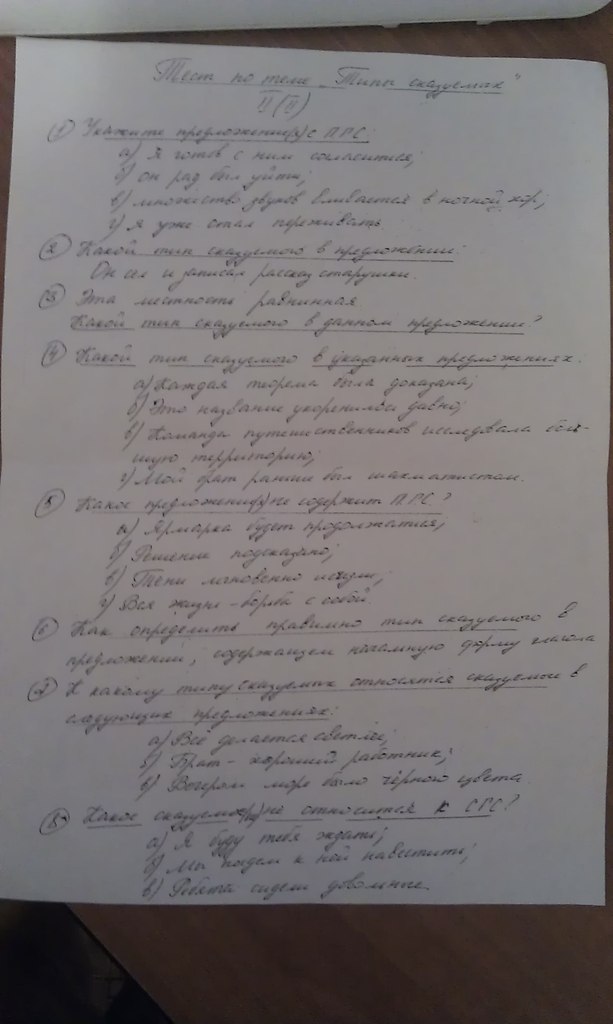 Тест по теме „Типы сказуемых"
II (II)
① Укажите предложение(я) с ПГС:
а) Я готов с ним согласиться;
б) он рад был уйти;
в) множество звуков вливается в ночной хор;
г) я уже стал переживать
② Какой тип сказуемого в предложении:
Он сел и записал рассказ старушки.
③ Эта местность равнинная.
Какой тип сказуемого в данном предложении?
④ Какой тип сказуемого в указанных предложениях:
а) Каждая теорема была доказана;
б) Это название укоренилось давно;
в) Команда путешественников исследовала боль-
шую территорию;
г) Мой брат раньше был шахматистом.
⑤ Какое предложение(я) не содержит ПГС?
а) Ярмарка будет продолжаться;
б) Решение подсказано;
в) Тени мгновенно исчезли;
г) Вся жизнь – борьба с собой.
⑥ Как определить правильно тип сказуемого в
предложении, содержащем начальную форму глагола
⑦ К какому типу сказуемых относятся сказуемые в
следующих предложениях:
а) Всё делается светлее;
б) Брат – хороший работник;
в) Вечером море было чёрного цвета.
⑧ Какое сказуемое не относится к СГС?
а) Я буду тебя ждать;
б) Мы пойдем к ней навестить;
в) Ребята сидели довольные.